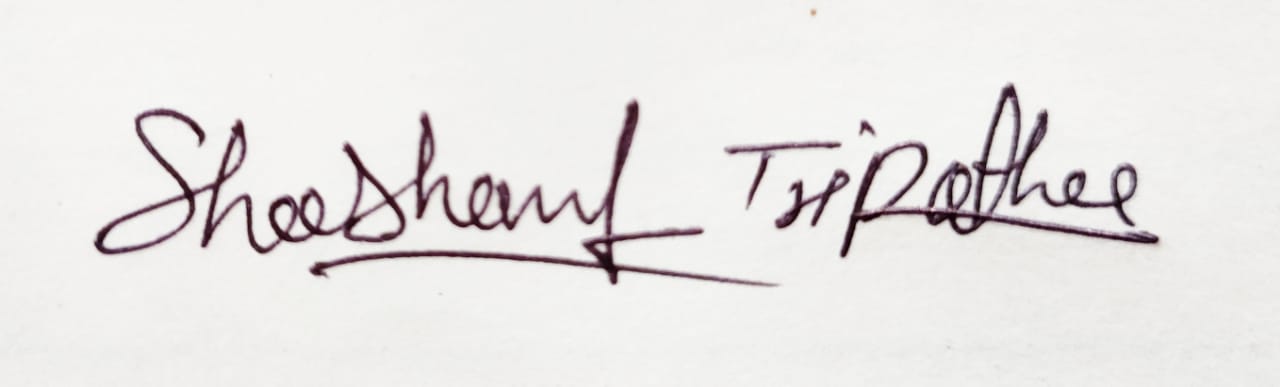 Shaashank Tripathee